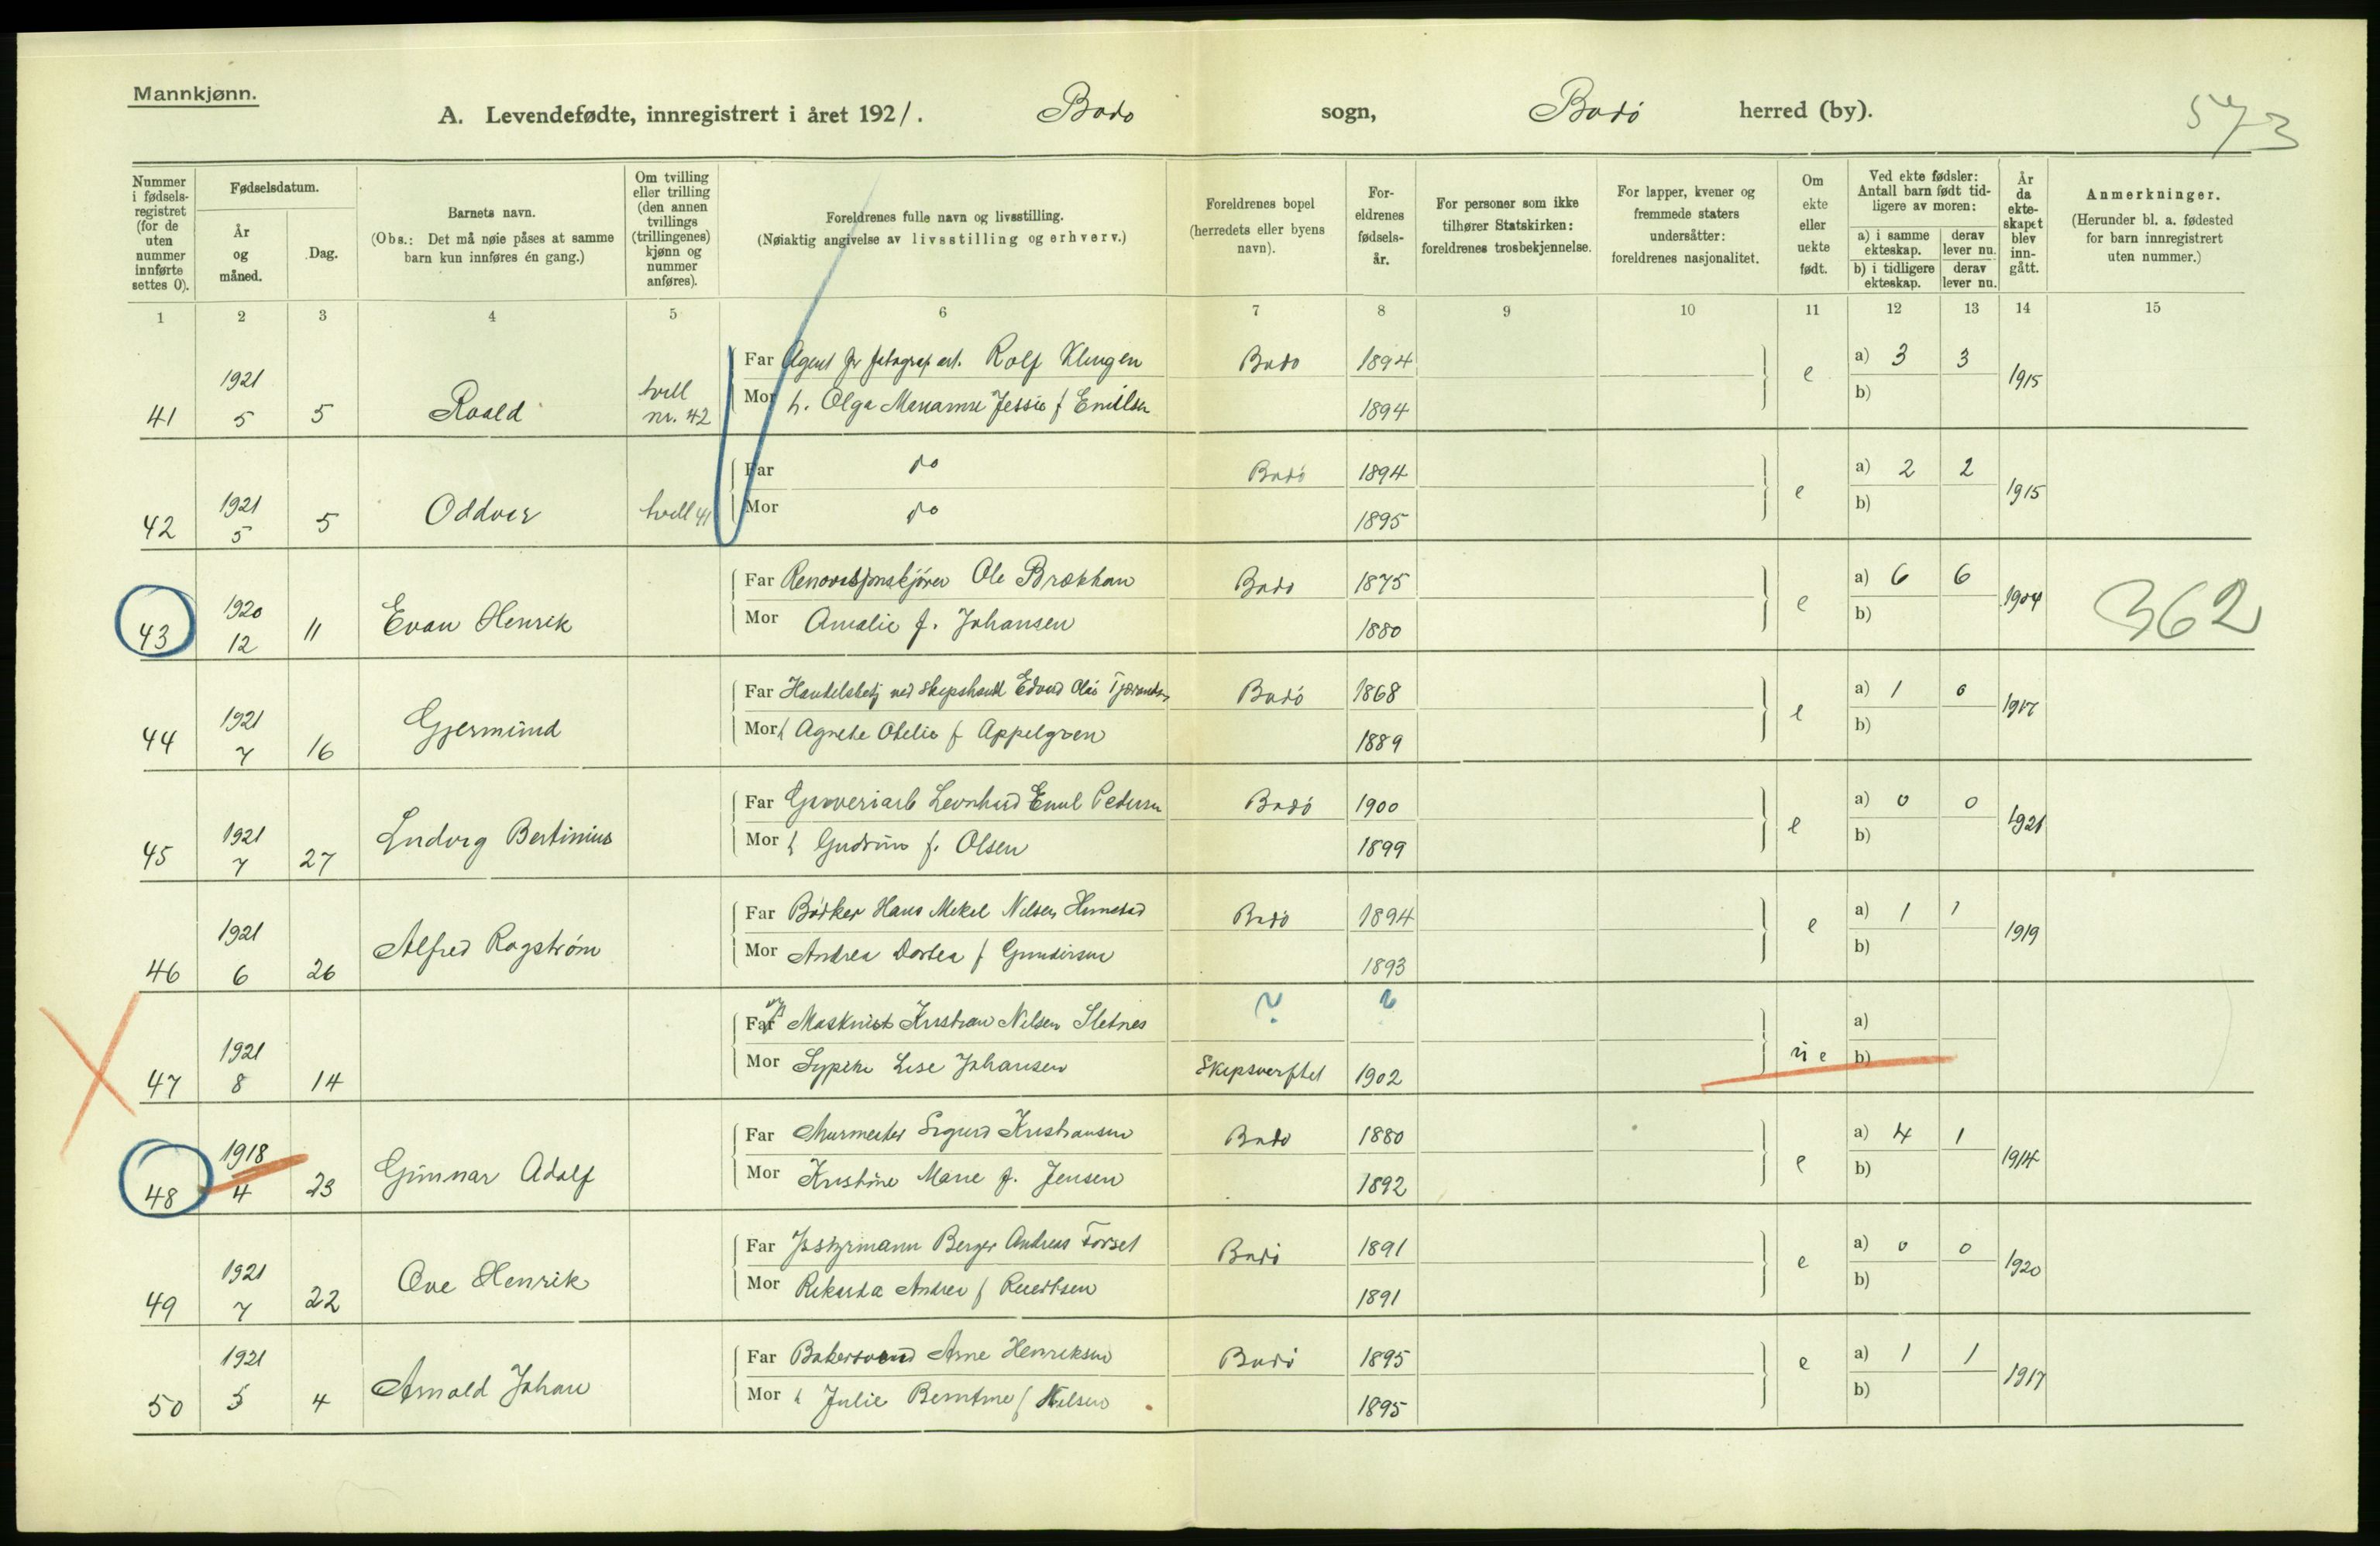 Mannkjønn.
A. Levendefødte, innregistrert i året 1921. Bodø sogn, Bodø herred (by). 573
Nummer i fødsels-registret (for de uten nummer innførte settes 0).
Fødselsdatum.
År og måned.
Dag.
Barnets navn.
(Obs.: Det må nøie påses at samme barn kun innføres én gang.)
Om tvilling eller trilling (den annen tvillings (trillingenes) kjønn og nummer anføres).
Foreldrenes fulle navn og livsstilling.
(Nøiaktig angivelse av livsstilling og erhverv.)
Foreldrenes bopel (herredets eller byens navn).
For-eldrenes fødsels-år.
For personer som ikke tilhører Statskirken: foreldrenes trosbekjennelse.
For lapper, kvener og fremmede staters undersåtter: foreldrenes nasjonalitet.
Om ekte eller uekte født.
Ved ekte fødsler: Antall barn født tid-ligere av moren:
a) i samme ekteskap. derav lever nu.
b) i tidligere ekteskap. derav lever nu.
År da ekte-skapet blev inn-gått.
Anmerkninger.
(Herunder bl. a. fødested for barn innregistrert uten nummer.)
1 2 3 4 5 6 7 8 9 10 11 12 13 14 15
41 1921 5 5 Roald tvill nr. 42
Far Agent Rolf Klingen Bodø 1894 e a) 3 3 1915
Mor h. Olga Marianne Jessie f Emilsen 1894 b)
42 1921 5 5 Oddvar tvill 41
Far do Bodø 1894 e a) 2 2 1915
Mor do 1895 b)
43 1920 12 11 Evan Henrik
Far Renovasjonskjører Ole Brækkan Bodø 1875 e a) 6 6 1904 362
Mor Amalie f. Johansen 1880 b)
44 1921 7 16 Gjermund
Far Handelsbetj ved Edvard Olai Bodø 1868 e a) 1 0 1917
Mor h Agnete Otelie f Appelgren 1889 b)
45 1921 7 27 Ludvig Bertinius
Far Garveriarb Leonhard Emil Pedersen Bodø 1900 e a) 0 0 1921
Mor h Gudrun f. Olsen 1899 b)
46 1921 6 26 Alfred Ragstrøm
Far Bødker Hans Mikel Nilsen Bodø 1894 e a) 1 1 1919
Mor Andrea Dortea f Gundersen 1893 b)
47 1921 8 14
Far Maskinist Kristian Nilsen Sletnes ? ? ue a)
Mor Sypike Lise Johansen Skipsverftet 1902 b)
48 1918 4 23 Gunnar Adolf
Far Murmester Sigurd Kristiansen Bodø 1880 e a) 4 1 1914
Mor Kristine Marie f. Jensen 1892 b)
49 1921 7 22 Ove Henrik
Far Berger Andreas Forset Bodø 1891 e a) 0 0 1920
Mor Rikarda Andrea f 1891 b)
50 1921 5 4 Arnold Johan
Far Bakersvend Arne Henriksen Bodø 1895 e a) 1 1 1917
Mor h Julie Berntine f Nilsen 1895 b)